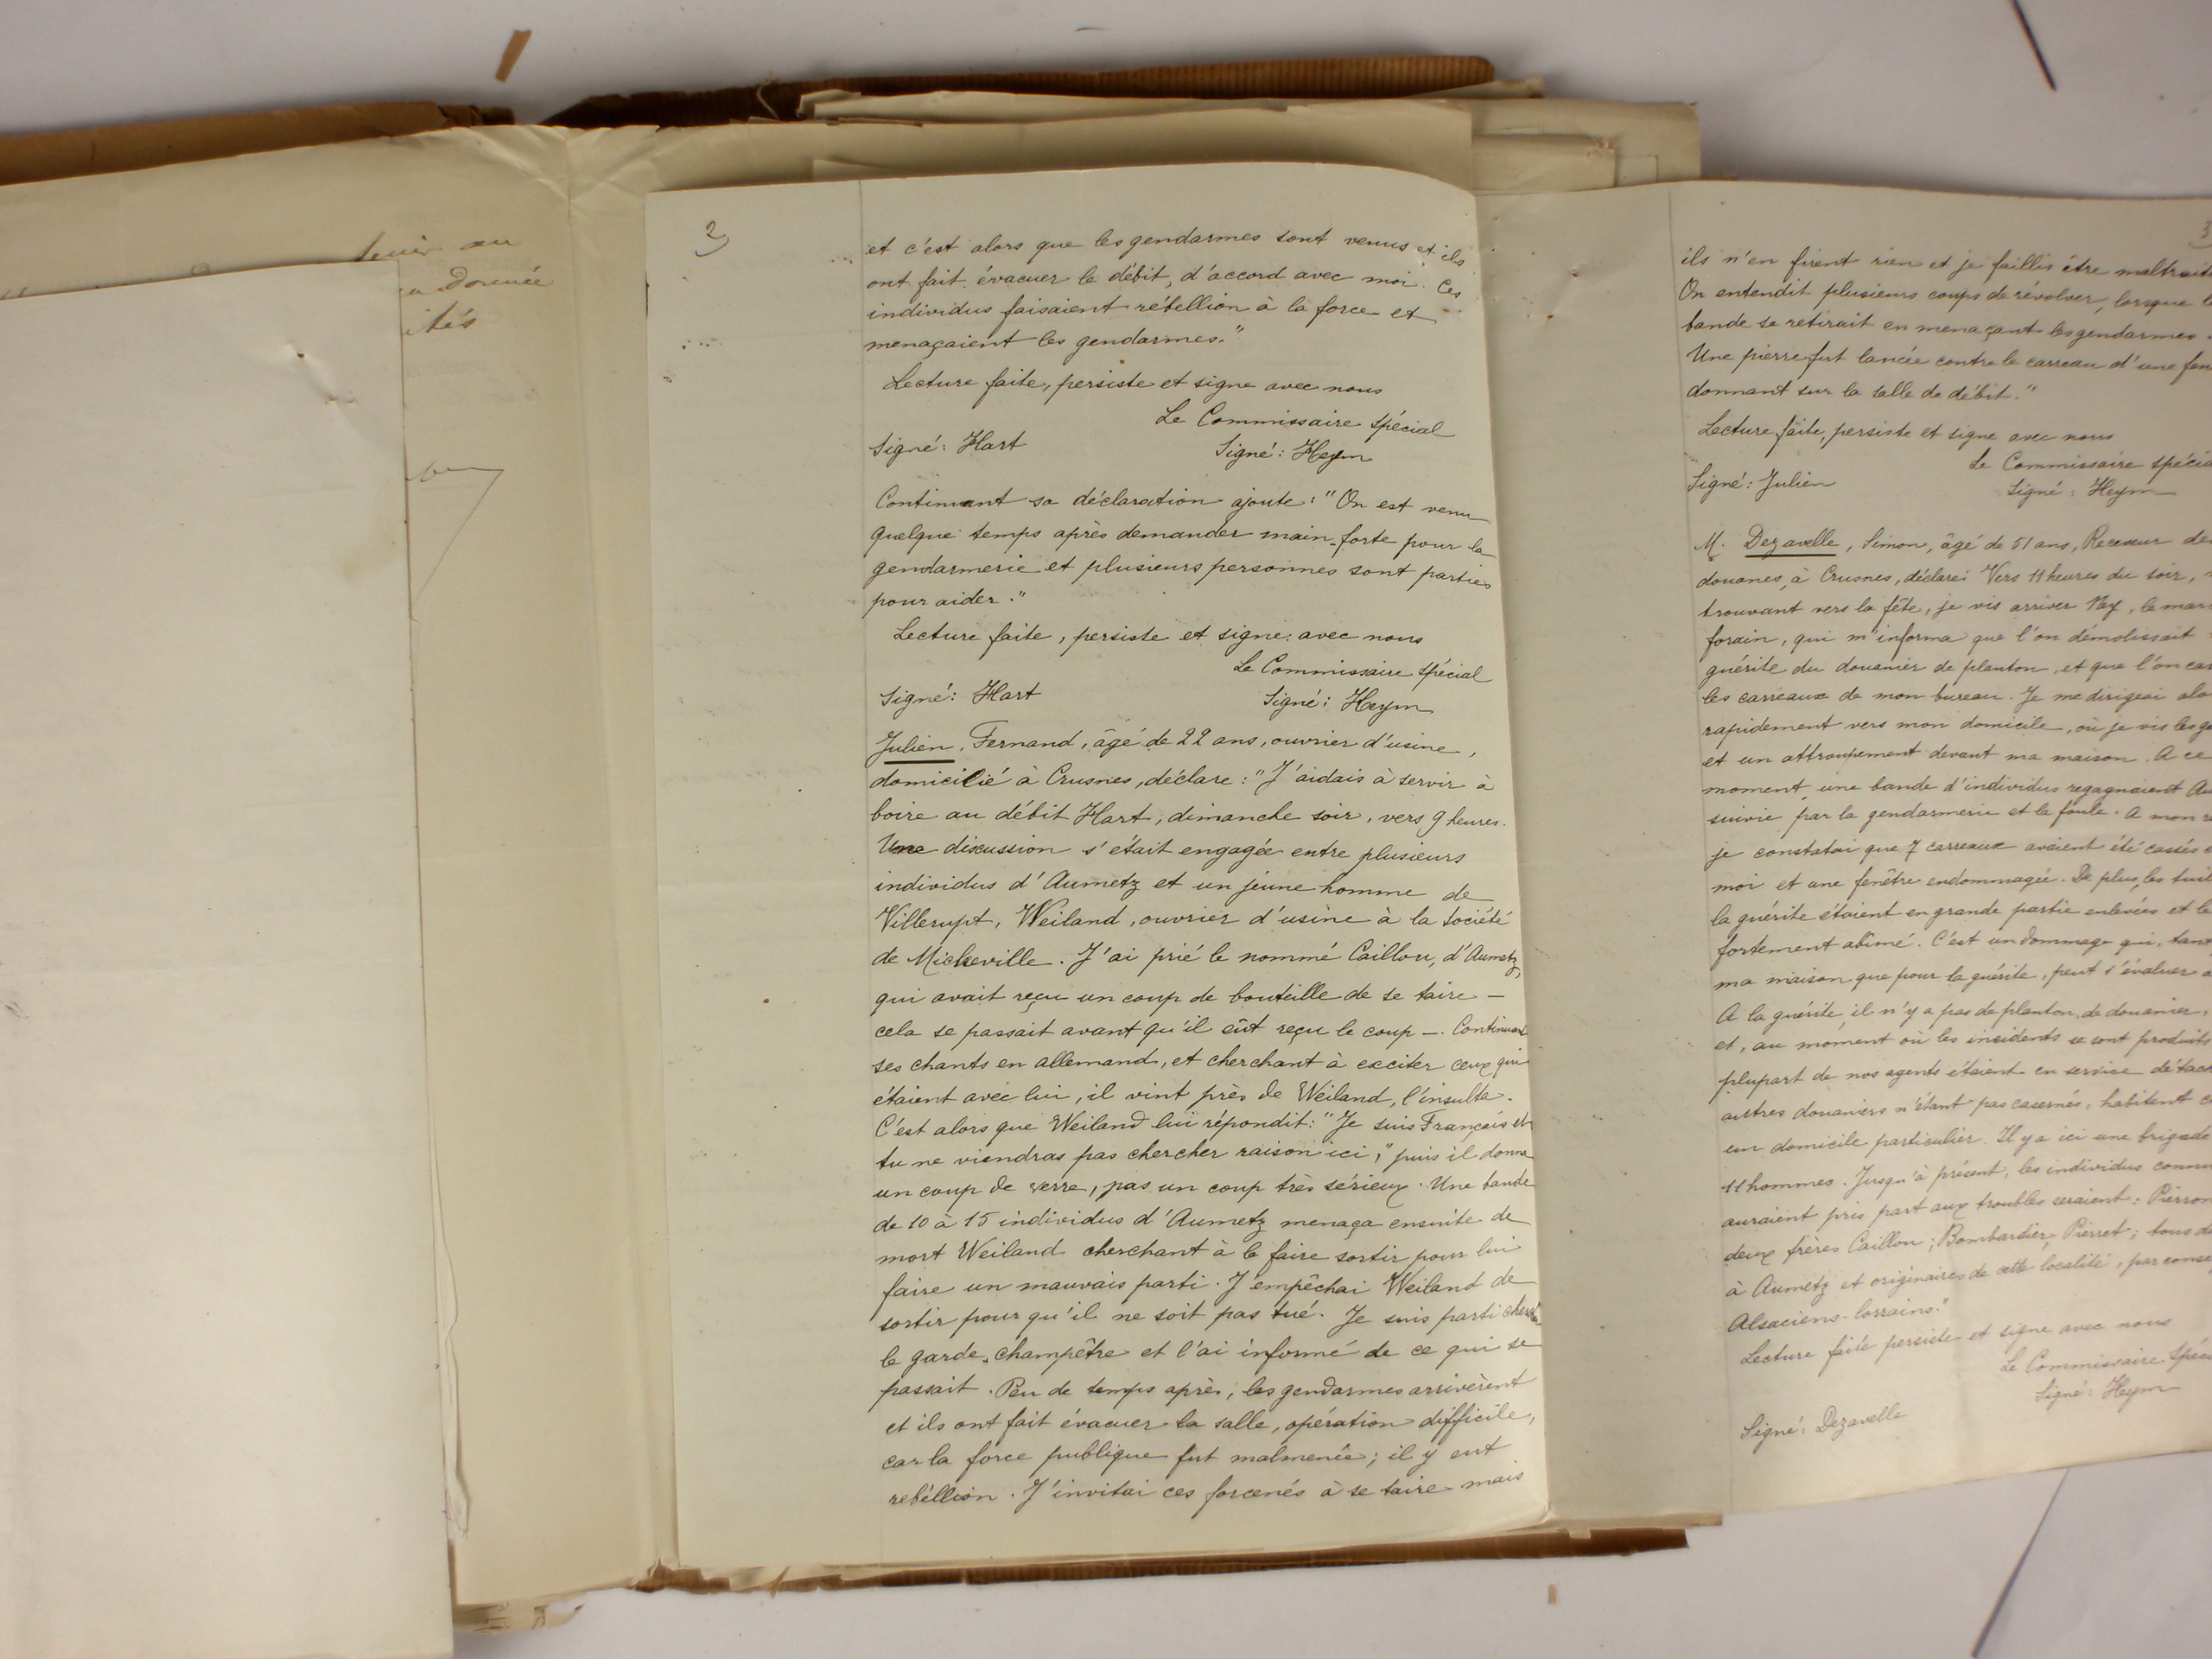 tenir au
donnée
ités
2)
et c'est alors que les gendarmes sont venus et ils
ont fait évacuer le débit, d'accord avec moi. Ces
individus faisaient rébellion à la force et
menaçaient les gendarmes."
Lecture faite, persiste et signe avec nous
Le Commissaire Spécial
Signé: Hart Signé: Heym
Continuant sa déclaration ajoute: "On est venu
quelque temps après demander main-forte pour la
gendarmerie et plusieurs personnes sont parties
pour aider."
Lecture faite, persiste et signe avec nous
Le Commissaire Spécial
Signé: Hart Signé: Heym
Julien, Fernand, âgé de 22 ans, ouvrier d'usine,
domicilié à Crusnes, déclare: "J'aidais à servir à
boire au débit Hart, dimanche soir, vers 9 heures.
Une discussion s'était engagée entre plusieurs
individus d'Aumetz et un jeune homme de
Villerupt, Weiland, ouvrier d'usine à la Société
de Micheville. J'ai prié le nommé Caillou, d'Aumetz,
qui avait reçu un coup de bouteille de se taire —
cela se passait avant qu'il eût reçu le coup —. Continuant
ses chants en allemand, et cherchant à exciter ceux qui
étaient avec lui, il vint près de Weiland, l'insulta.
C'est alors que Weiland lui répondit: "Je suis Français et
tu ne viendras pas chercher raison ici", puis il donna
un coup de verre, pas un coup très sérieux. Une bande
de 10 à 15 individus d'Aumetz menaça ensuite de
mort Weiland cherchant à le faire sortir pour lui
faire un mauvais parti. J'empêchai Weiland de
sortir pour qu'il ne soit pas tué. Je suis parti chercher
le garde-champêtre et l'ai informé de ce qui se
passait. Peu de temps après, les gendarmes arrivèrent
et ils ont fait évacuer la salle, opération difficile,
car la force publique fut malmenée; il y eut
rebéllion. J'invitai ces forcenés à se taire mais
3
ils n'en firent rien et je faillis être maltraité
On entendit plusieurs coups de révolver, lorsque la
bande se retirait en menaçant les gendarmes.
Une pierre fut lancée contre le carreau d'une fen
donnant sur la salle de débit."
Lecture faite, persiste et signe avec nous
Le Commissaire spécia
Signé: Julien Signé: Heym
M. Dezavelle, Simon, âgé de 51 ans, Receveur des
douanes, à Crusnes, déclare: Vers 11 heures du soir,
trouvant vers la fête, je vis arriver le mar
forain, qui m'informa que l'on démolissait
guérite du douanier de planton, et que l'on cas
les carreaux de mon bureau. Je me dirigeai alo
rapidement vers mon domicile, où je vis les ge
et un attroupement devant ma maison. A ce
moment, une bande d'individus regagnaient Au
suivie par la gendarmerie et la foule. A mon r
je constatai que 7 carreaux avaient été cassés c
moi et une fenêtre endommagée. De plus, les tuil
la guérite étaient en grande partie enlevées et le
fortement abîmé. C'est un dommage qui, tant
ma maison que pour la guérite, peut s'évaluer à
A la guérite, il n'y a pas de planton, de douanier,
et, au moment où les incidents se sont produits
plupart de nos agents étaient en service détach
autres douaniers n'étant pas casernés, habitent c
un domicile particulier. Il y a ici une brigade
11 hommes. Jusqu'à présent, les individus connu
auraient pris part aux troubles seraient: Pierron
deux frères Caillou; Bombardier, Pierret; tous de
à Aumetz et originaires de cette localité, par conse
Alsaciens-lorrains."
Lecture faite persiste et signe avec nous
Le Commissaire Spéci
Signé: Heym
Signé: Dezavelle